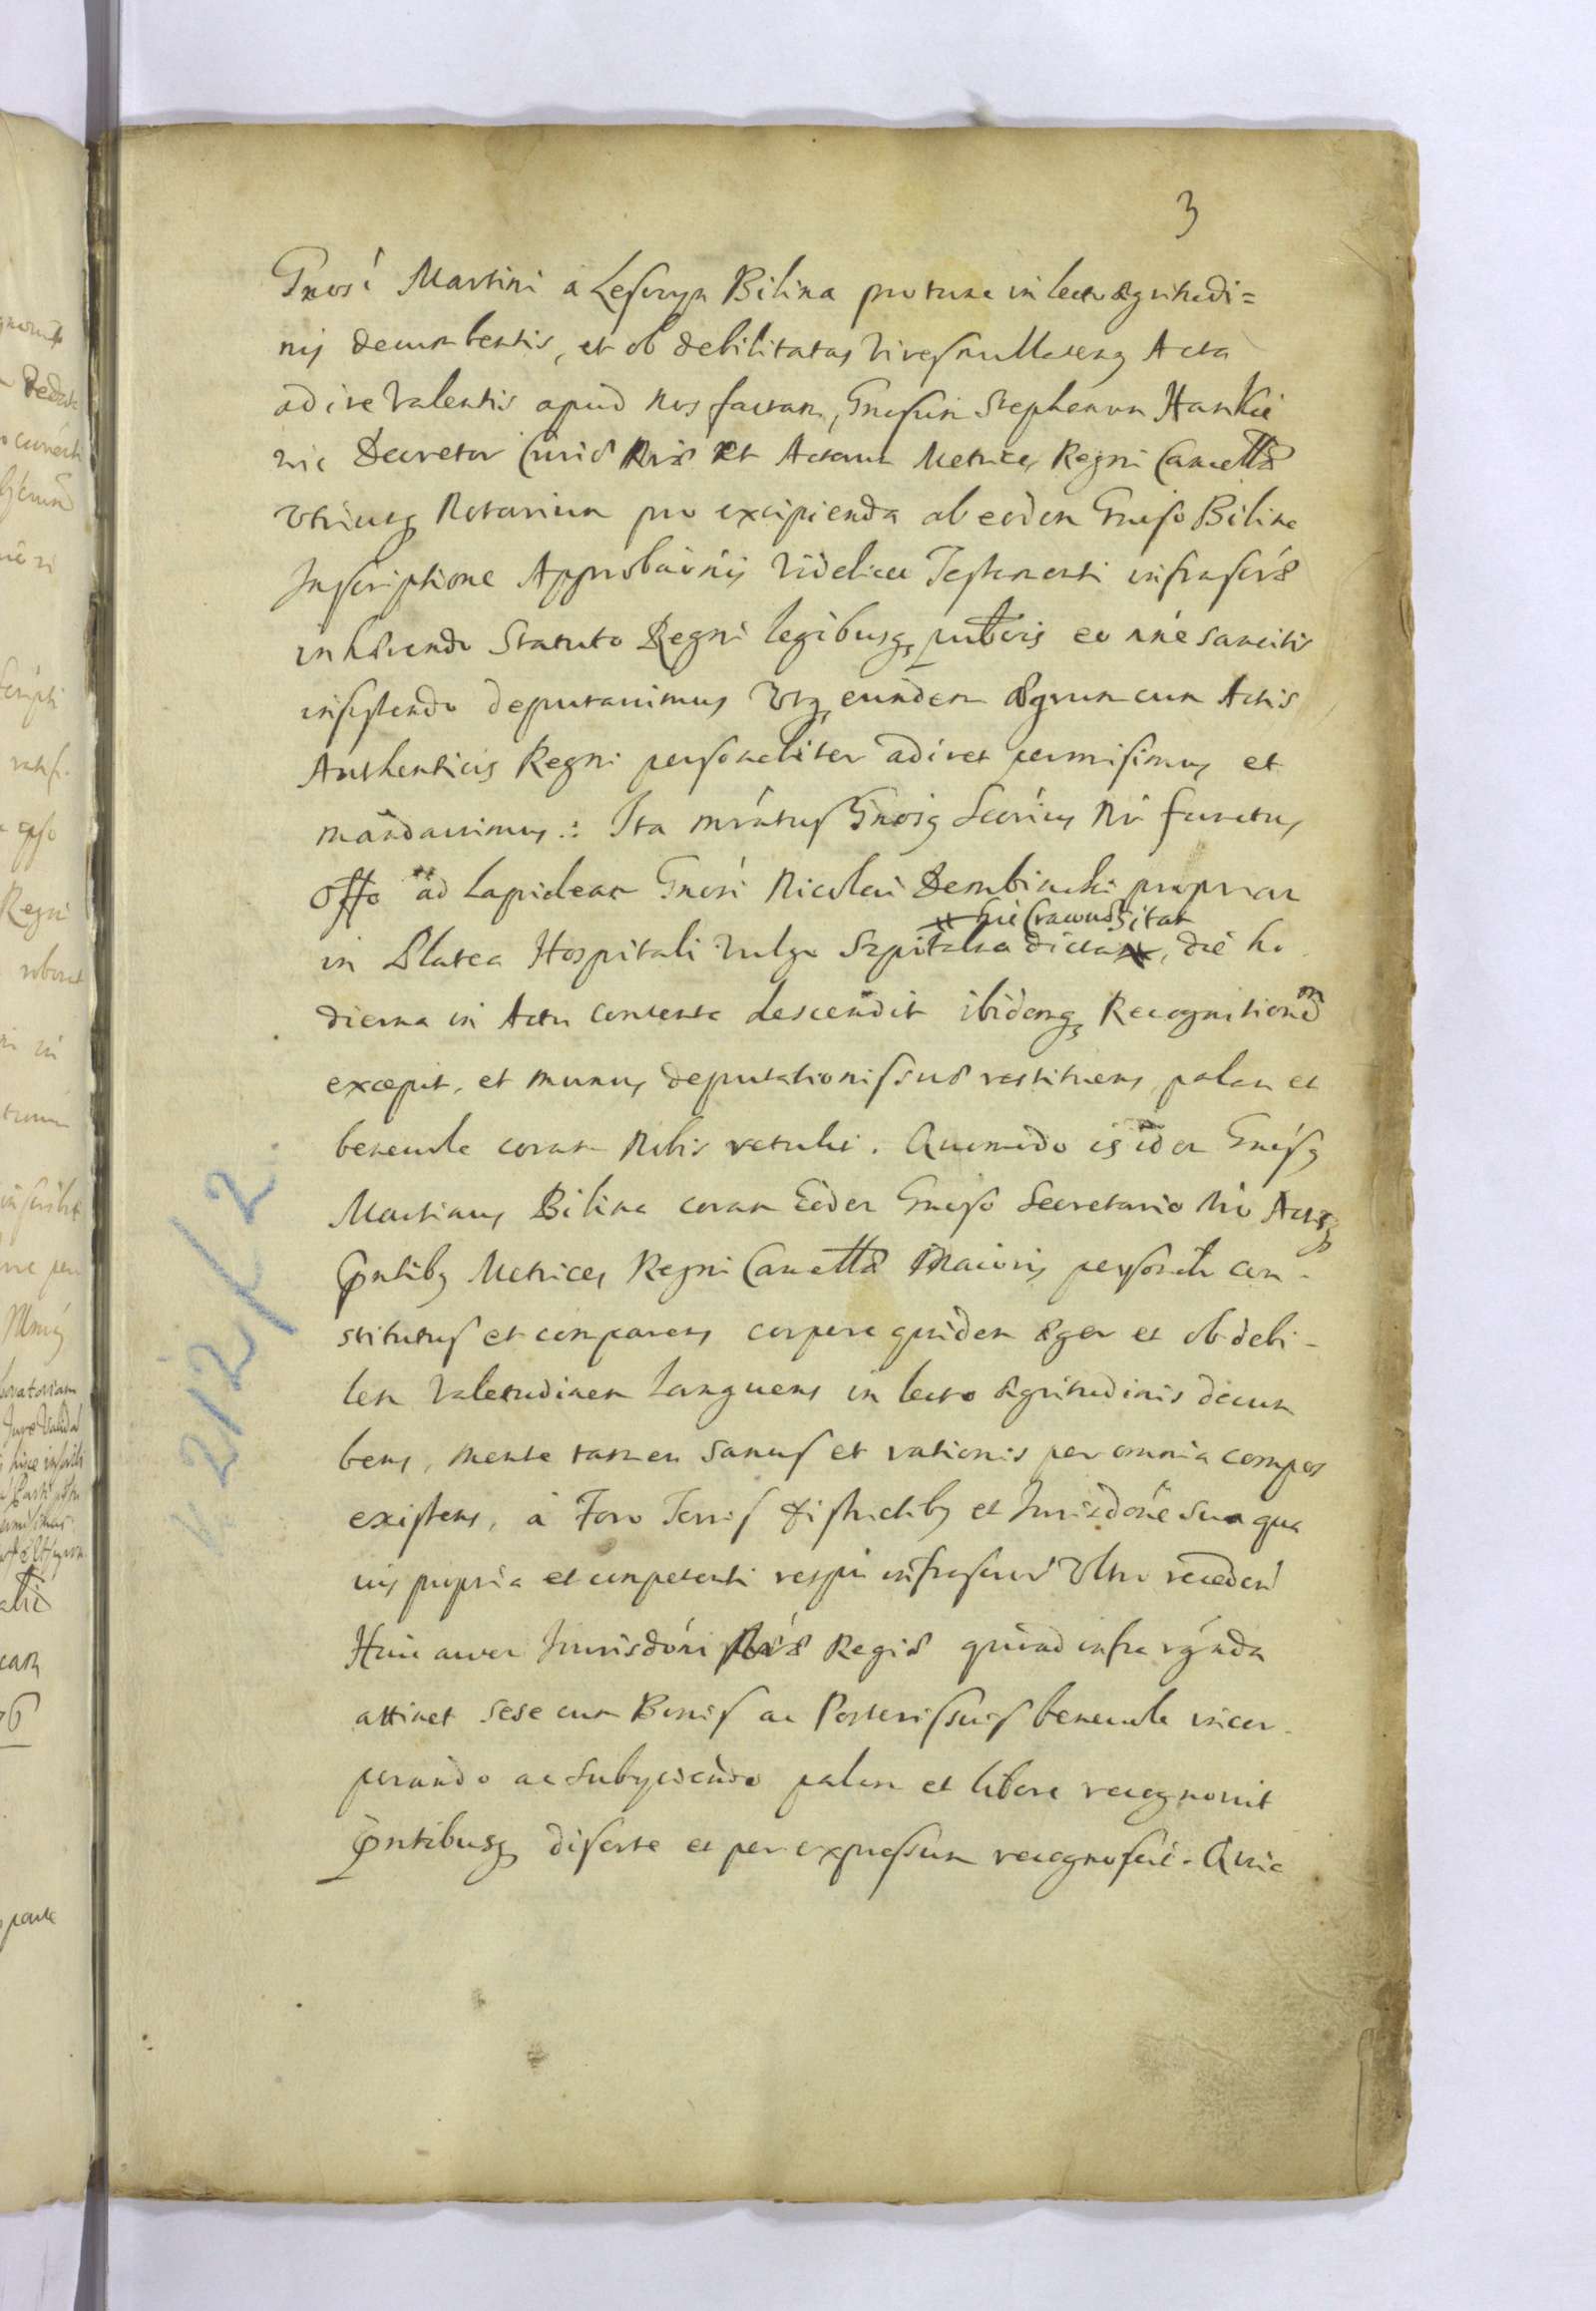 3
Gnosi Martini a Lesczyn Bilina pro tunc in lecto ægritudi=
nis decumbentis, et ob debilitatas vires nullatenq Acta
adire valentis apud nos factam, Gnosum Stephanum Hankie
wic Decretor Curiæ Nræ et Actorum Metrices Regni Cancellæ
Utriusq Notarium pro excipienda ab eodem Gnoso Bilina
Inscriptione Approbaonis videlicet Testamenti infrascræ
inhærendo Statuto Regni legibusq publicis eo nne sancitis
insistendo deputavimus Utq eundem ægrum cum Actis
Authenticis Regni personaliter adiret permisimus et
mandavimus: Ita mratus Gnosq Secrius Nr functus
offo ad Lapideam Gnosi Nicolai Dembinski propriam
hic Cracoviæ sitam
in Platea Hospitali vulgo Szpitalna dicta, die ho
dierna in Actu contenta descendit ibidemq Recognitionem
excepit, et munus deputationis suæ restituens palam et
benevole coram Nobis retulit. Quomodo is idem Gnosq
Martinus Bilina coram eodem Gnoso Secretario Nro Actisq
pntibq Metrices Regni Cancellæ Maioris personalr con-
stitutus et comparens corpore quidem æger et ob debi-
lem valetudinem languens in lecto ægritudinis decum
bens, mente tamen sanus et rationis per omnia compos
existens, à Foro Terris districtibq et Jurisdone sua qua
vis propria et competenti respu infrascror Ultro recedens
Huic autem Jurisdoni Næ Regiæ quoad infra
attinet sese cum Bonis ac Posteris suis benevole incor-
porando ac subyciendo palam et libere recognovit
pntibusq diserte et per expressum recognoscit. Quia
212/2.